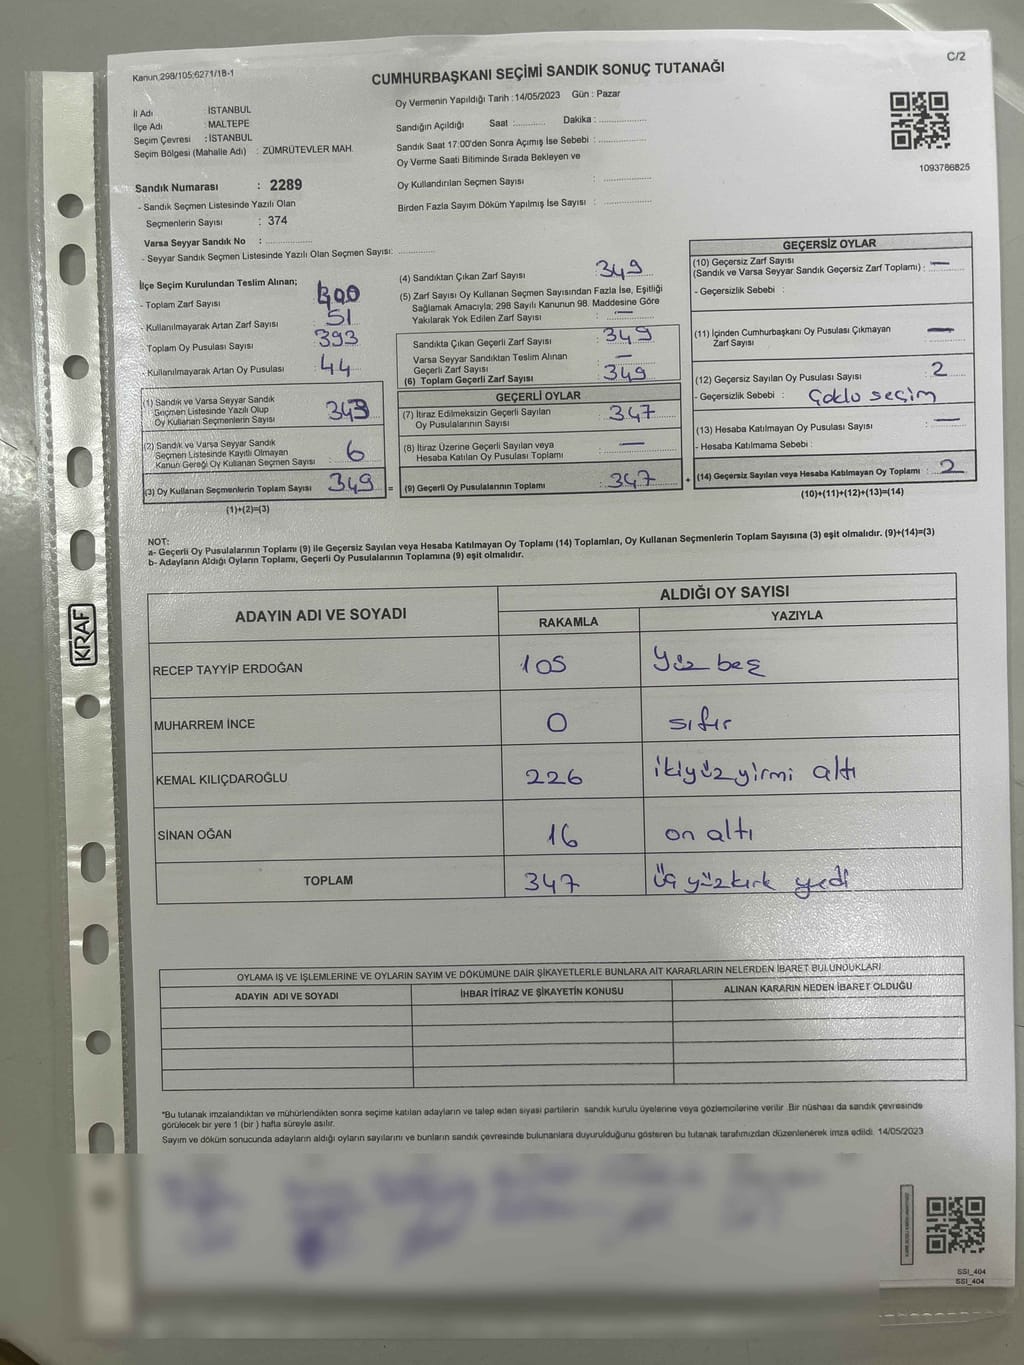 Kanun,298/105;6271/18-1
C/2
CUMHURBAŞKANI SEÇİMİ SANDIK SONUÇ TUTANAĞI
İl Adı : İSTANBUL
İlçe Adı : MALTEPE
Seçim Çevresi : İSTANBUL
Seçim Bölgesi (Mahalle Adı) : ZÜMRÜTEVLER MAH.
Oy Vermenin Yapıldığı Tarih : 14/05/2023 Gün : Pazar
Sandığın Açıldığı Saat :............ Dakika :.................
Sandık Saat 17:00'den Sonra Açımış İse Sebebi :.................
Oy Verme Saati Bitiminde Sırada Bekleyen ve
Oy Kullandırılan Seçmen Sayısı :.................
Birden Fazla Sayım Döküm Yapılmış İse Sayısı :.................
1093766825
Sandık Numarası : 2289
- Sandık Seçmen Listesinde Yazılı Olan
Seçmenlerin Sayısı : 374
Varsa Seyyar Sandık No :.................
- Seyyar Sandık Seçmen Listesinde Yazılı Olan Seçmen Sayısı:.............
İlçe Seçim Kurulundan Teslim Alınan;
- Toplam Zarf Sayısı
- Kullanılmayarak Artan Zarf Sayısı 51
Toplam Oy Pusulası Sayısı 393
- Kullanılmayarak Artan Oy Pusulası 44
(1) Sandık ve Varsa Seyyar Sandık
Seçmen Listesinde Yazılı Olup
Oy Kullanan Seçmenlerin Sayısı 343
(2) Sandık ve Varsa Seyyar Sandık
Seçmen Listesinde Kayıtlı Olmayan
Kanun Gereği Oy Kullanan Seçmen Sayısı 6
(3) Oy Kullanan Seçmenlerin Toplam Sayısı 349 =
(1)+(2)=(3)
(4) Sandıktan Çıkan Zarf Sayısı 349
(5) Zarf Sayısı Oy Kullanan Seçmen Sayısından Fazla İse, Eşitliği
Sağlamak Amacıyla; 298 Sayılı Kanunun 98. Maddesine Göre
Yakılarak Yok Edilen Zarf Sayısı : —
Sandıkta Çıkan Geçerli Zarf Sayısı : 349
Varsa Seyyar Sandıktan Teslim Alınan
Geçerli Zarf Sayısı —
(6) Toplam Geçerli Zarf Sayısı 349
GEÇERLİ OYLAR
(7) İtiraz Edilmeksizin Geçerli Sayılan
Oy Pusulalarının Sayısı : 347
(8) İtiraz Üzerine Geçerli Sayılan veya
Hesaba Katılan Oy Pusulası Toplamı : —
(9) Geçerli Oy Pusulalarının Toplamı : 347 +
GEÇERSİZ OYLAR
(10) Geçersiz Zarf Sayısı
(Sandık ve Varsa Seyyar Sandık Geçersiz Zarf Toplamı) : —
- Geçersizlik Sebebi :
(11) İçinden Cumhurbaşkanı Oy Pusulası Çıkmayan
Zarf Sayısı : —
(12) Geçersiz Sayılan Oy Pusulası Sayısı : 2
- Geçersizlik Sebebi : Çoklu seçim
(13) Hesaba Katılmayan Oy Pusulası Sayısı : —
- Hesaba Katılmama Sebebi :
(14) Geçersiz Sayılan veya Hesaba Katılmayan Oy Toplamı : 2
(10)+(11)+(12)+(13)=(14)
NOT:
a- Geçerli Oy Pusulalarının Toplamı (9) ile Geçersiz Sayılan veya Hesaba Katılmayan Oy Toplamı (14) Toplamları, Oy Kullanan Seçmenlerin Toplam Sayısına (3) eşit olmalıdır. (9)+(14)=(3)
b- Adayların Aldığı Oyların Toplamı, Geçerli Oy Pusulalarının Toplamına (9) eşit olmalıdır.
ADAYIN ADI VE SOYADI ALDIĞI OY SAYISI
RAKAMLA YAZIYLA
RECEP TAYYİP ERDOĞAN 105 Yüz beş
MUHARREM İNCE 0 sıfır
KEMAL KILIÇDAROĞLU 226 ikiyüz yirmi altı
SİNAN OĞAN 16 on altı
TOPLAM 347 üç yüzkırk yedi
OYLAMA İŞ VE İŞLEMLERİNE VE OYLARIN SAYIM VE DÖKÜMÜNE DAİR ŞİKAYETLERLE BUNLARA AİT KARARLARIN NELERDEN İBARET BULUNDUKLARI
ADAYIN ADI VE SOYADI İHBAR İTİRAZ VE ŞİKAYETİN KONUSU ALINAN KARARIN NEDEN İBARET OLDUĞU
*Bu tutanak imzalandıktan ve mühürlendikten sonra seçime katılan adayların ve talep eden siyasi partilerin sandık kurulu üyelerine veya gözlemcilerine verilir. Bir nüshası da sandık çevresinde
görülecek bir yere 1 (bir ) hafta süreyle asılır.
Sayım ve döküm sonucunda adayların aldığı oyların sayılarını ve bunların sandık çevresinde bulunanlara duyurulduğunu gösteren bu tutanak tarafımızdan düzenlenerek imza edildi. 14/05/2023
SSI_404
SSI_404
KRAF